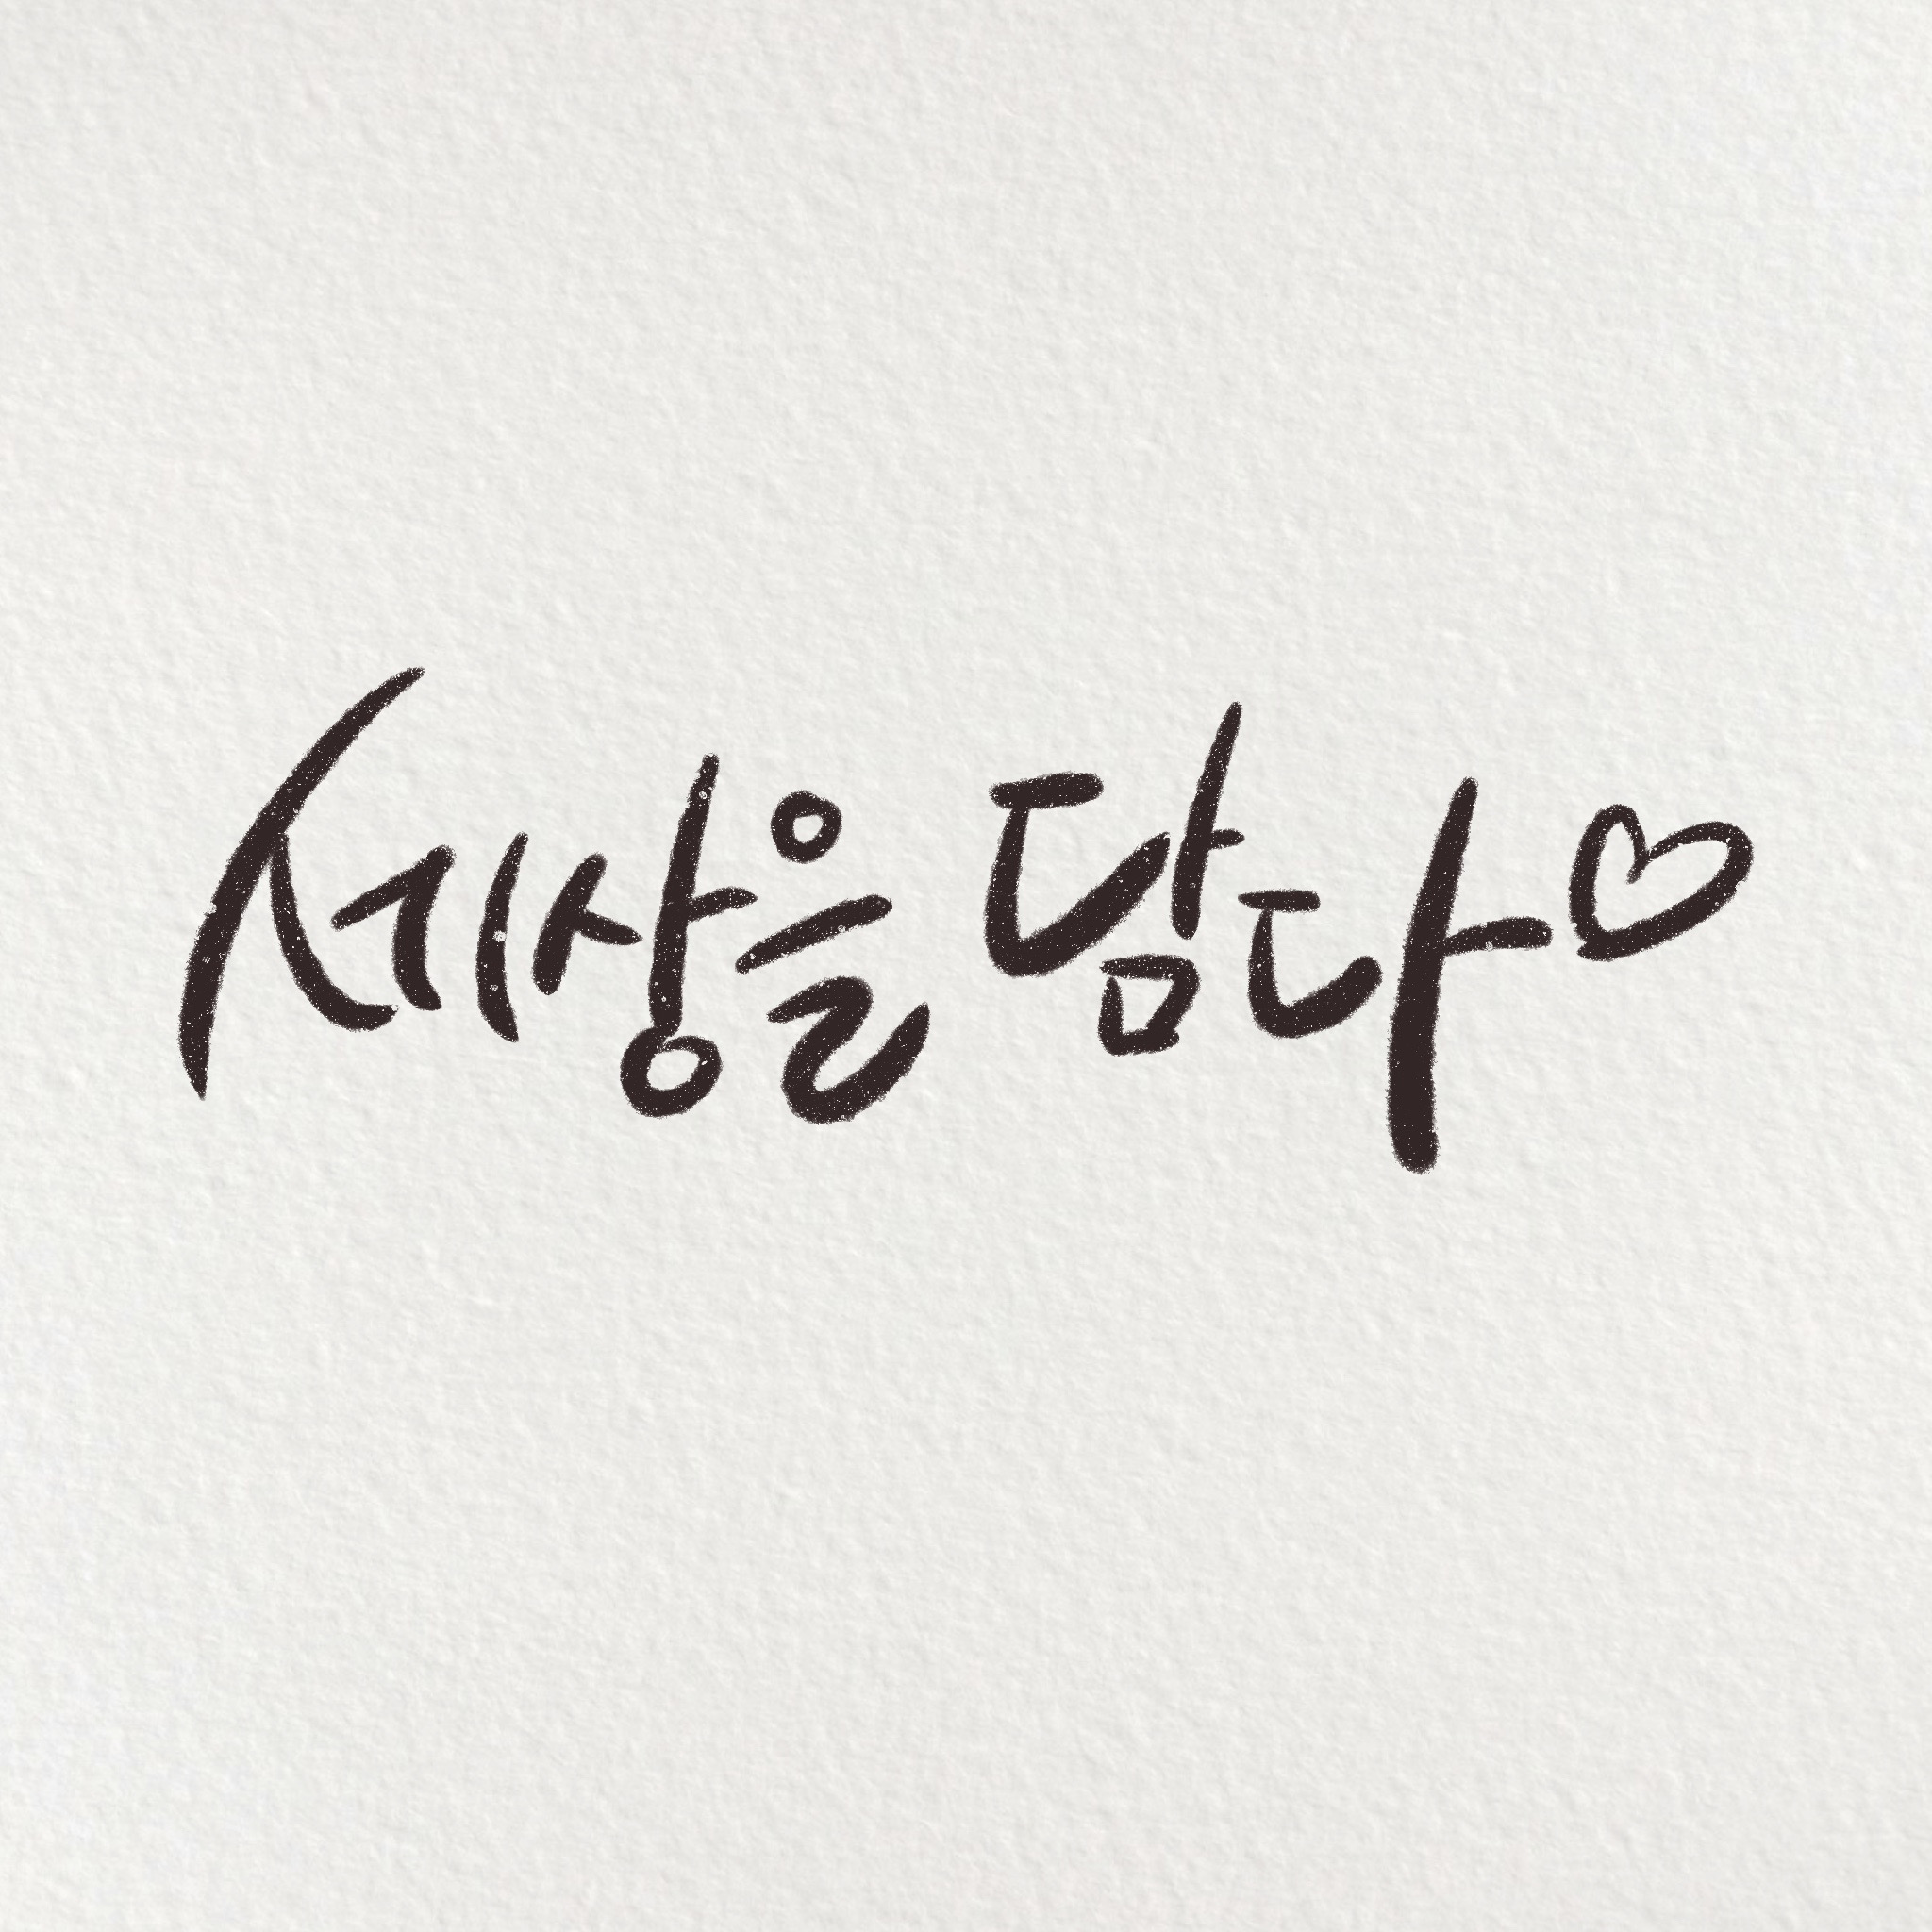 세상을 담다♡